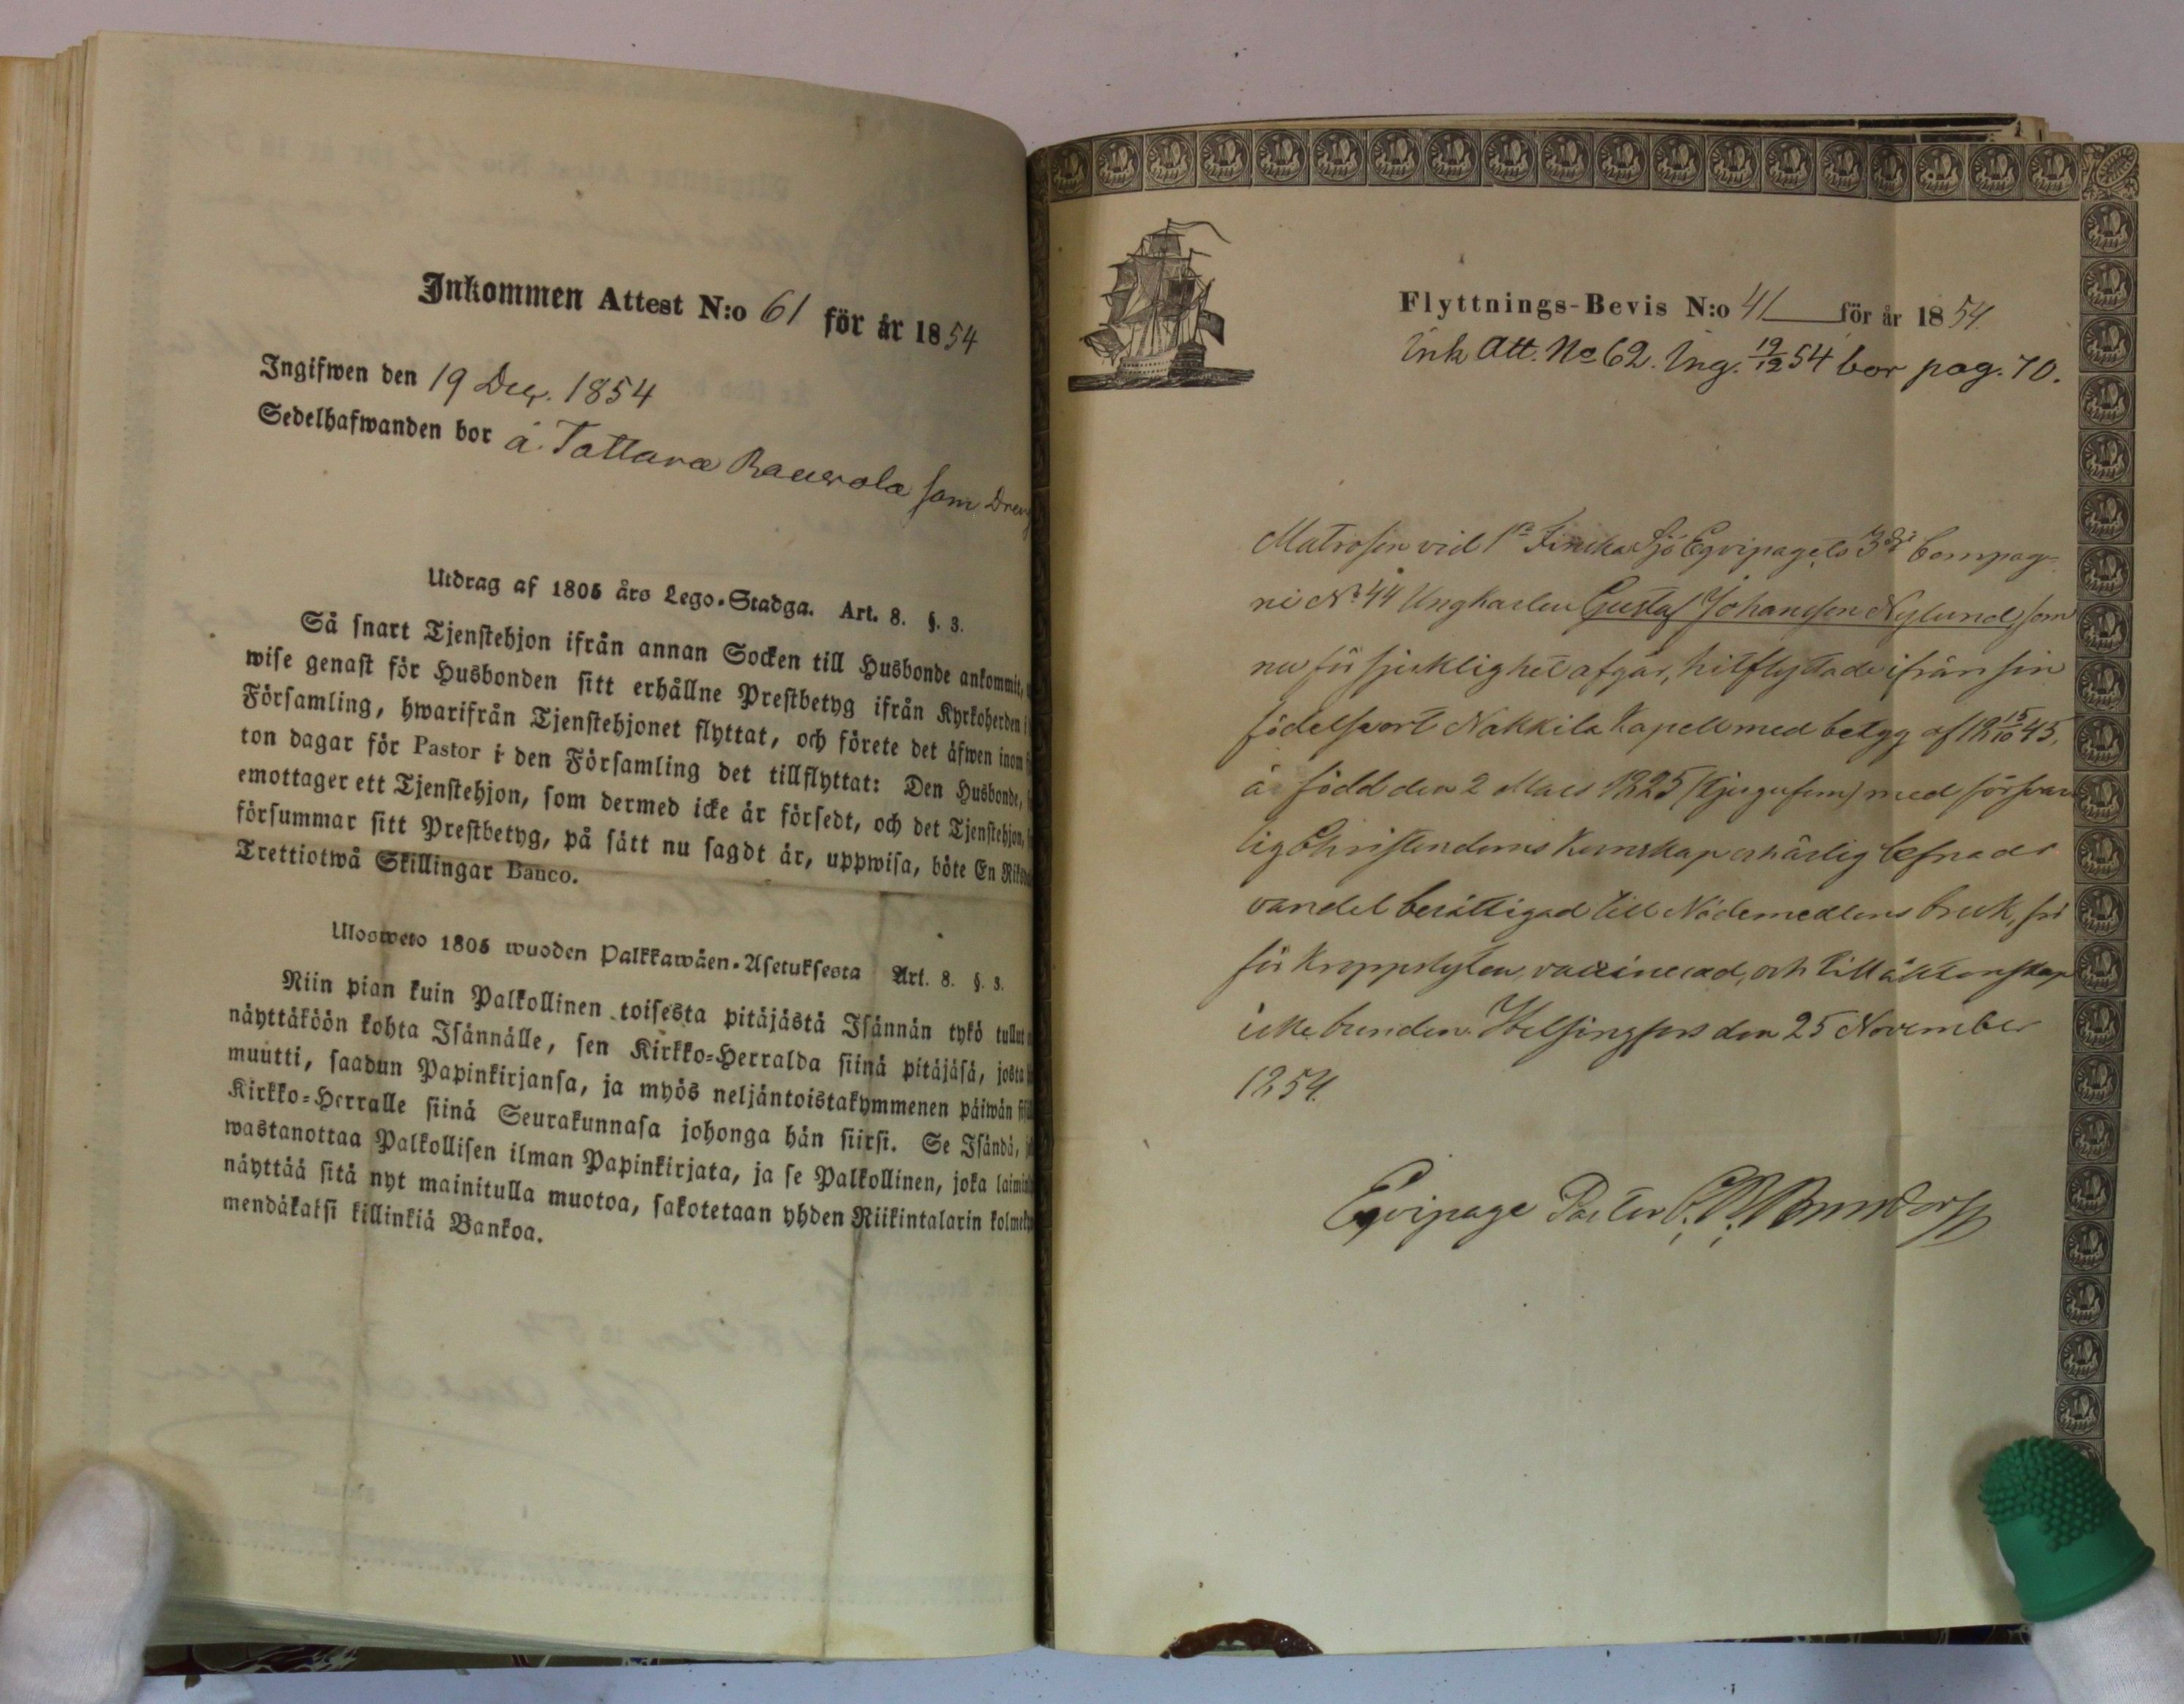 Inkommen Attest N:o 61 för år 1854
Ingifwen den 19 Dec. 1854
Sedelhafwanden bor å Tattara Rauvola som Dreng
Utdrag af 1805 års Lego-Stadga. Art. 8. §. 3.
Så snart Tjenstehjon ifrån annan Socken till Husbonde ankommit,
wise genast för Husbonden sitt erhållne Prestbetyg ifrån Kyrkoherden i
Församling, hwarifrån Tjenstehjonet flyttat, och förete det äfwen inom
ton dagar för Pastor i den Församling det tillflyttat: Den Husbonde,
emottager ett Tjenstehjon, som dermed icke är försedt, och det Tjenstehjon,
försummar sitt Prestbetyg, på sätt nu sagdt är, uppwisa, böte En
Trettiotwå Skillingar Banco.
Uloswето 1805 wuoden Palkkawäen-Asetuksesta Art. 8. §. 3.
Niin pian kuin Palkollinen toisesta pitäjästä Isännän tykö tullut
näyttäköön kohta Isännälle, sen Kirkko-Herralda siinä pitäjäsä, josta
muutti, saadun Papinkirjansa, ja myös neljäntoistakymmenen päiwän
Kirkko-Herralle siinä Seurakunnasa johonga hän siirsi. Se Isändä,
wastanottaa Palkollisen ilman Papinkirjata, ja se Palkollinen, joka
näyttää sitä nyt mainitulla muotoa, sakotetaan yhden Riikintalarin
mendäkaksi killinkiä Bankoa.
Flyttnings-Bevis N:o 41 för år 1854.
Ink Att. No 62. Ing. 19/12 54 bor pag. 70.
Matrosen vid 1ra Finska Sjö Eqvipagets 3dje Compag-
ni No 44 Ungkarlen Gustaf Johansson Nylund, som
nu för sjuklighet afgår, hitflyttade ifrån sin
födelseort Nakkila Kapell med betyg af 18 15/10 45,
är född den 2 Mars 1825 (tjugufem) med försvar
lig Christendoms kunskap o härlig lefnads
vandel berättigad till Nådemedlens bruk, fri
för kroppslyten, vaccinerad, och till äktenskap
icke bunden. Helsingfors den 25 November
1854.
Eqvipage Pastor